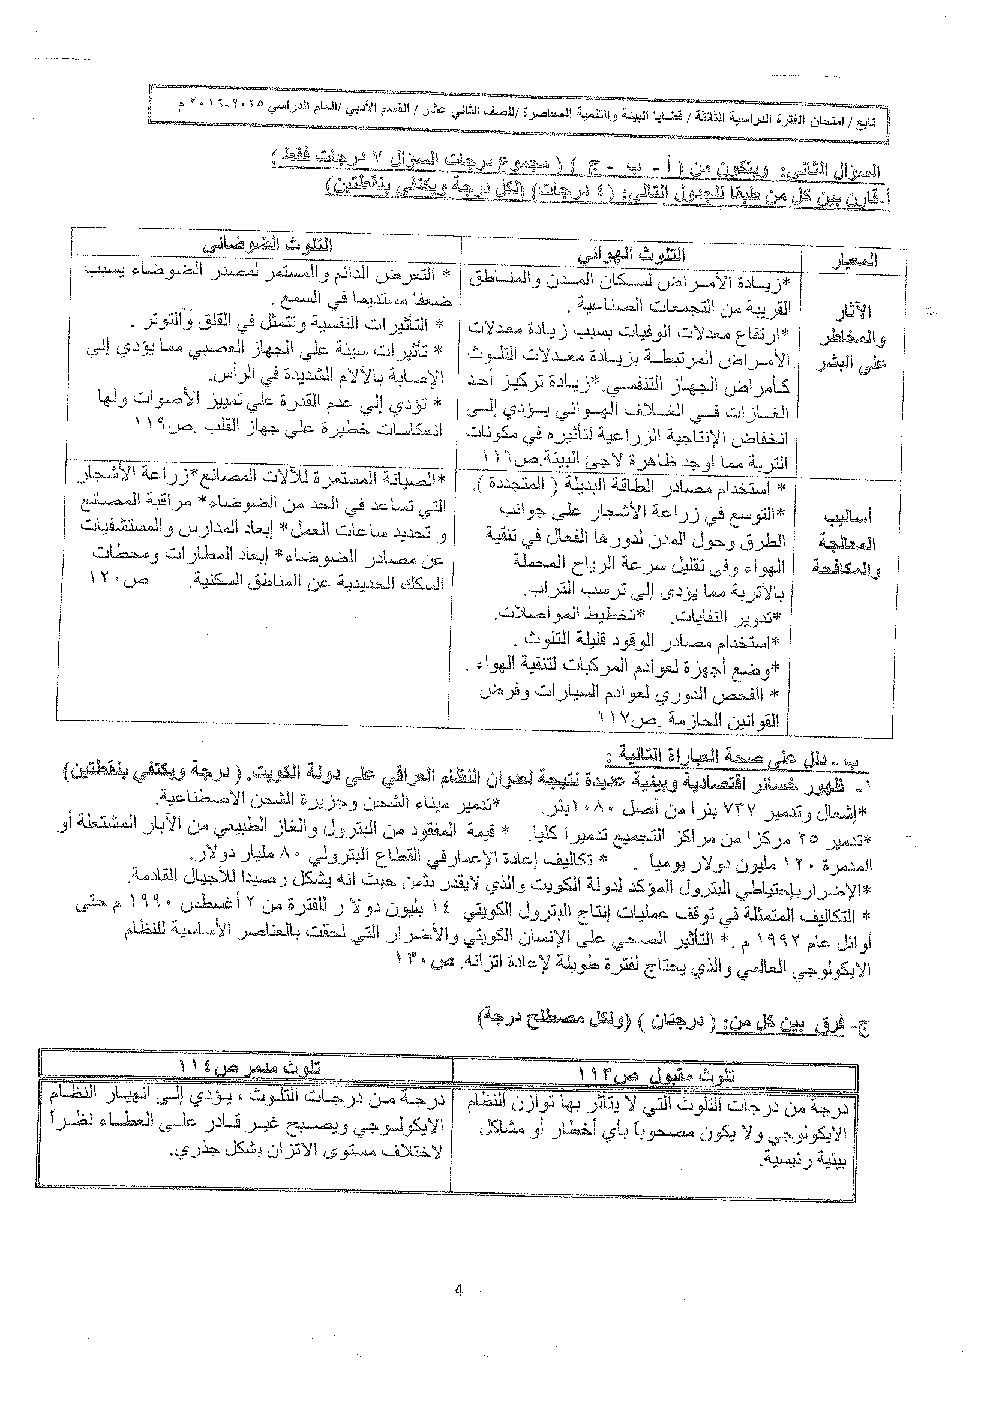 تابع / امتحان الفترة الدراسية الثالثة / قضايا البيئة والتنمية المعاصرة / للصف الثاني عشر / القسم الأدبي / العام الدراسي ٢٠١٥-٢٠١٦ م
السؤال الثاني: ويتكون من ( أ - ب - ج ) ( مجموع درجات السؤال ٧ درجات فقط )
أ-قارن بين كل من طبقا للجدول التالي: ( ٤ درجات) (لكل درجة ويكتفي بنقطتين)
المعيار
التلوث الهوائي
التلوث الضوضائي
الآثار
والمخاطر
على البشر
*زيادة الأمراض لسكان المدن والمناطق
القريبة من التجمعات الصناعية .
*ارتفاع معدلات الوفيات بسبب زيادة معدلات
الأمراض المرتبطة بزيادة معدلات التلوث
كأمراض الجهاز التنفسي.*زيادة تركيز أحد
الغازات في الغلاف الهوائي يؤدي إلى
انخفاض الإنتاجية الزراعية لتأثيره في مكونات
التربة مما أوجد ظاهرة لاجئ البيئة.ص١١٦
* التعرض الدائم والمستمر لمصدر الضوضاء يسبب
ضعفا مستديما في السمع .
* التأثيرات النفسية وتتمثل في القلق والتوتر .
* تأثيرات سيئة على الجهاز العصبي مما يؤدي إلى
الإصابة بالآلام الشديدة في الرأس.
* تؤدي إلى عدم القدرة على تمييز الأصوات ولها
انعكاسات خطيرة على جهاز القلب .ص١١٩
أساليب
المعالجة
والمكافحة
* استخدام مصادر الطاقة البديلة ( المتجددة ).
*التوسع في زراعة الأشجار على جوانب
الطرق وحول المدن لدورها الفعال في تنقية
الهواء وفي تقليل سرعة الرياح المحملة
بالأتربة مما يؤدي إلى ترسب التراب.
*تدوير النفايات. *تخطيط المواصلات.
*استخدام مصادر الوقود قليلة التلوث .
*وضع أجهزة لعوادم المركبات لتنقية الهواء .
* الفحص الدوري لعوادم السيارات وفرض
القوانين الحازمة .ص١١٧
*الصيانة المستمرة للآلات المصانع*زراعة الأشجار
التي تساعد في الحد من الضوضاء* مراقبة المصانع
و تحديد ساعات العمل* إبعاد المدارس والمستشفيات
عن مصادر الضوضاء* إبعاد المطارات ومحطات
السكك الحديدية عن المناطق السكنية. ص١٢٠
ب - دلل على صحة العبارة التالية :
١- ظهور خسائر اقتصادية وبيئية عديدة نتيجة لعدوان النظام العراقي على دولة الكويت. ( درجة ويكتفي بنقطتين)
*إشعال وتدمير ٧٣٧ بئرا من أصل ١٠٨٠ بئر. *تدمير ميناء الشحن وجزيرة الشحن الاصطناعية.
*تدمير ٢٥ مركزا من مراكز التجميع تدميرا كليا. * قيمة المفقود من البترول والغاز الطبيعي من الآبار المشتعلة أو
المدمرة ١٢٠ مليون دولار يوميا . * تكاليف إعادة الإعمار في القطاع البترولي ٨٠ مليار دولار.
*الإضرار بإحتياطي البترول المؤكد لدولة الكويت والذي لايقدر بثمن حيث أنه يشكل رصيدا للأجيال القادمة.
* التكاليف المتمثلة في توقف عمليات إنتاج البترول الكويتي ١٤ بليون دولار للفترة من ٢ أغسطس ١٩٩٠ م حتى
أوائل عام ١٩٩٢ م .* التأثير الصحي على الإنسان الكويتي والأضرار التي لحقت بالعناصر الأساسية للنظام
الايكولوجي العالمي والذي يحتاج لفترة طويلة لإعادة اتزانه. ص١٣٠
ج- فرق بين كل من: ( درجتان ) (ولكل مصطلح درجة)
تلوث مقبول ص١١٣
تلوث مدمر ص١١٤
درجة من درجات التلوث التي لا يتأثر بها توازن النظام
الايكولوجي ولا يكون مصحوبا بأي أخطار أو مشاكل
بيئية رئيسية.
درجة من درجات التلوث ، يؤدي إلى انهيار النظام
الايكولوجي ويصبح غير قادر على العطاء نظراً
لاختلاف مستوى الاتزان بشكل جذري.
4